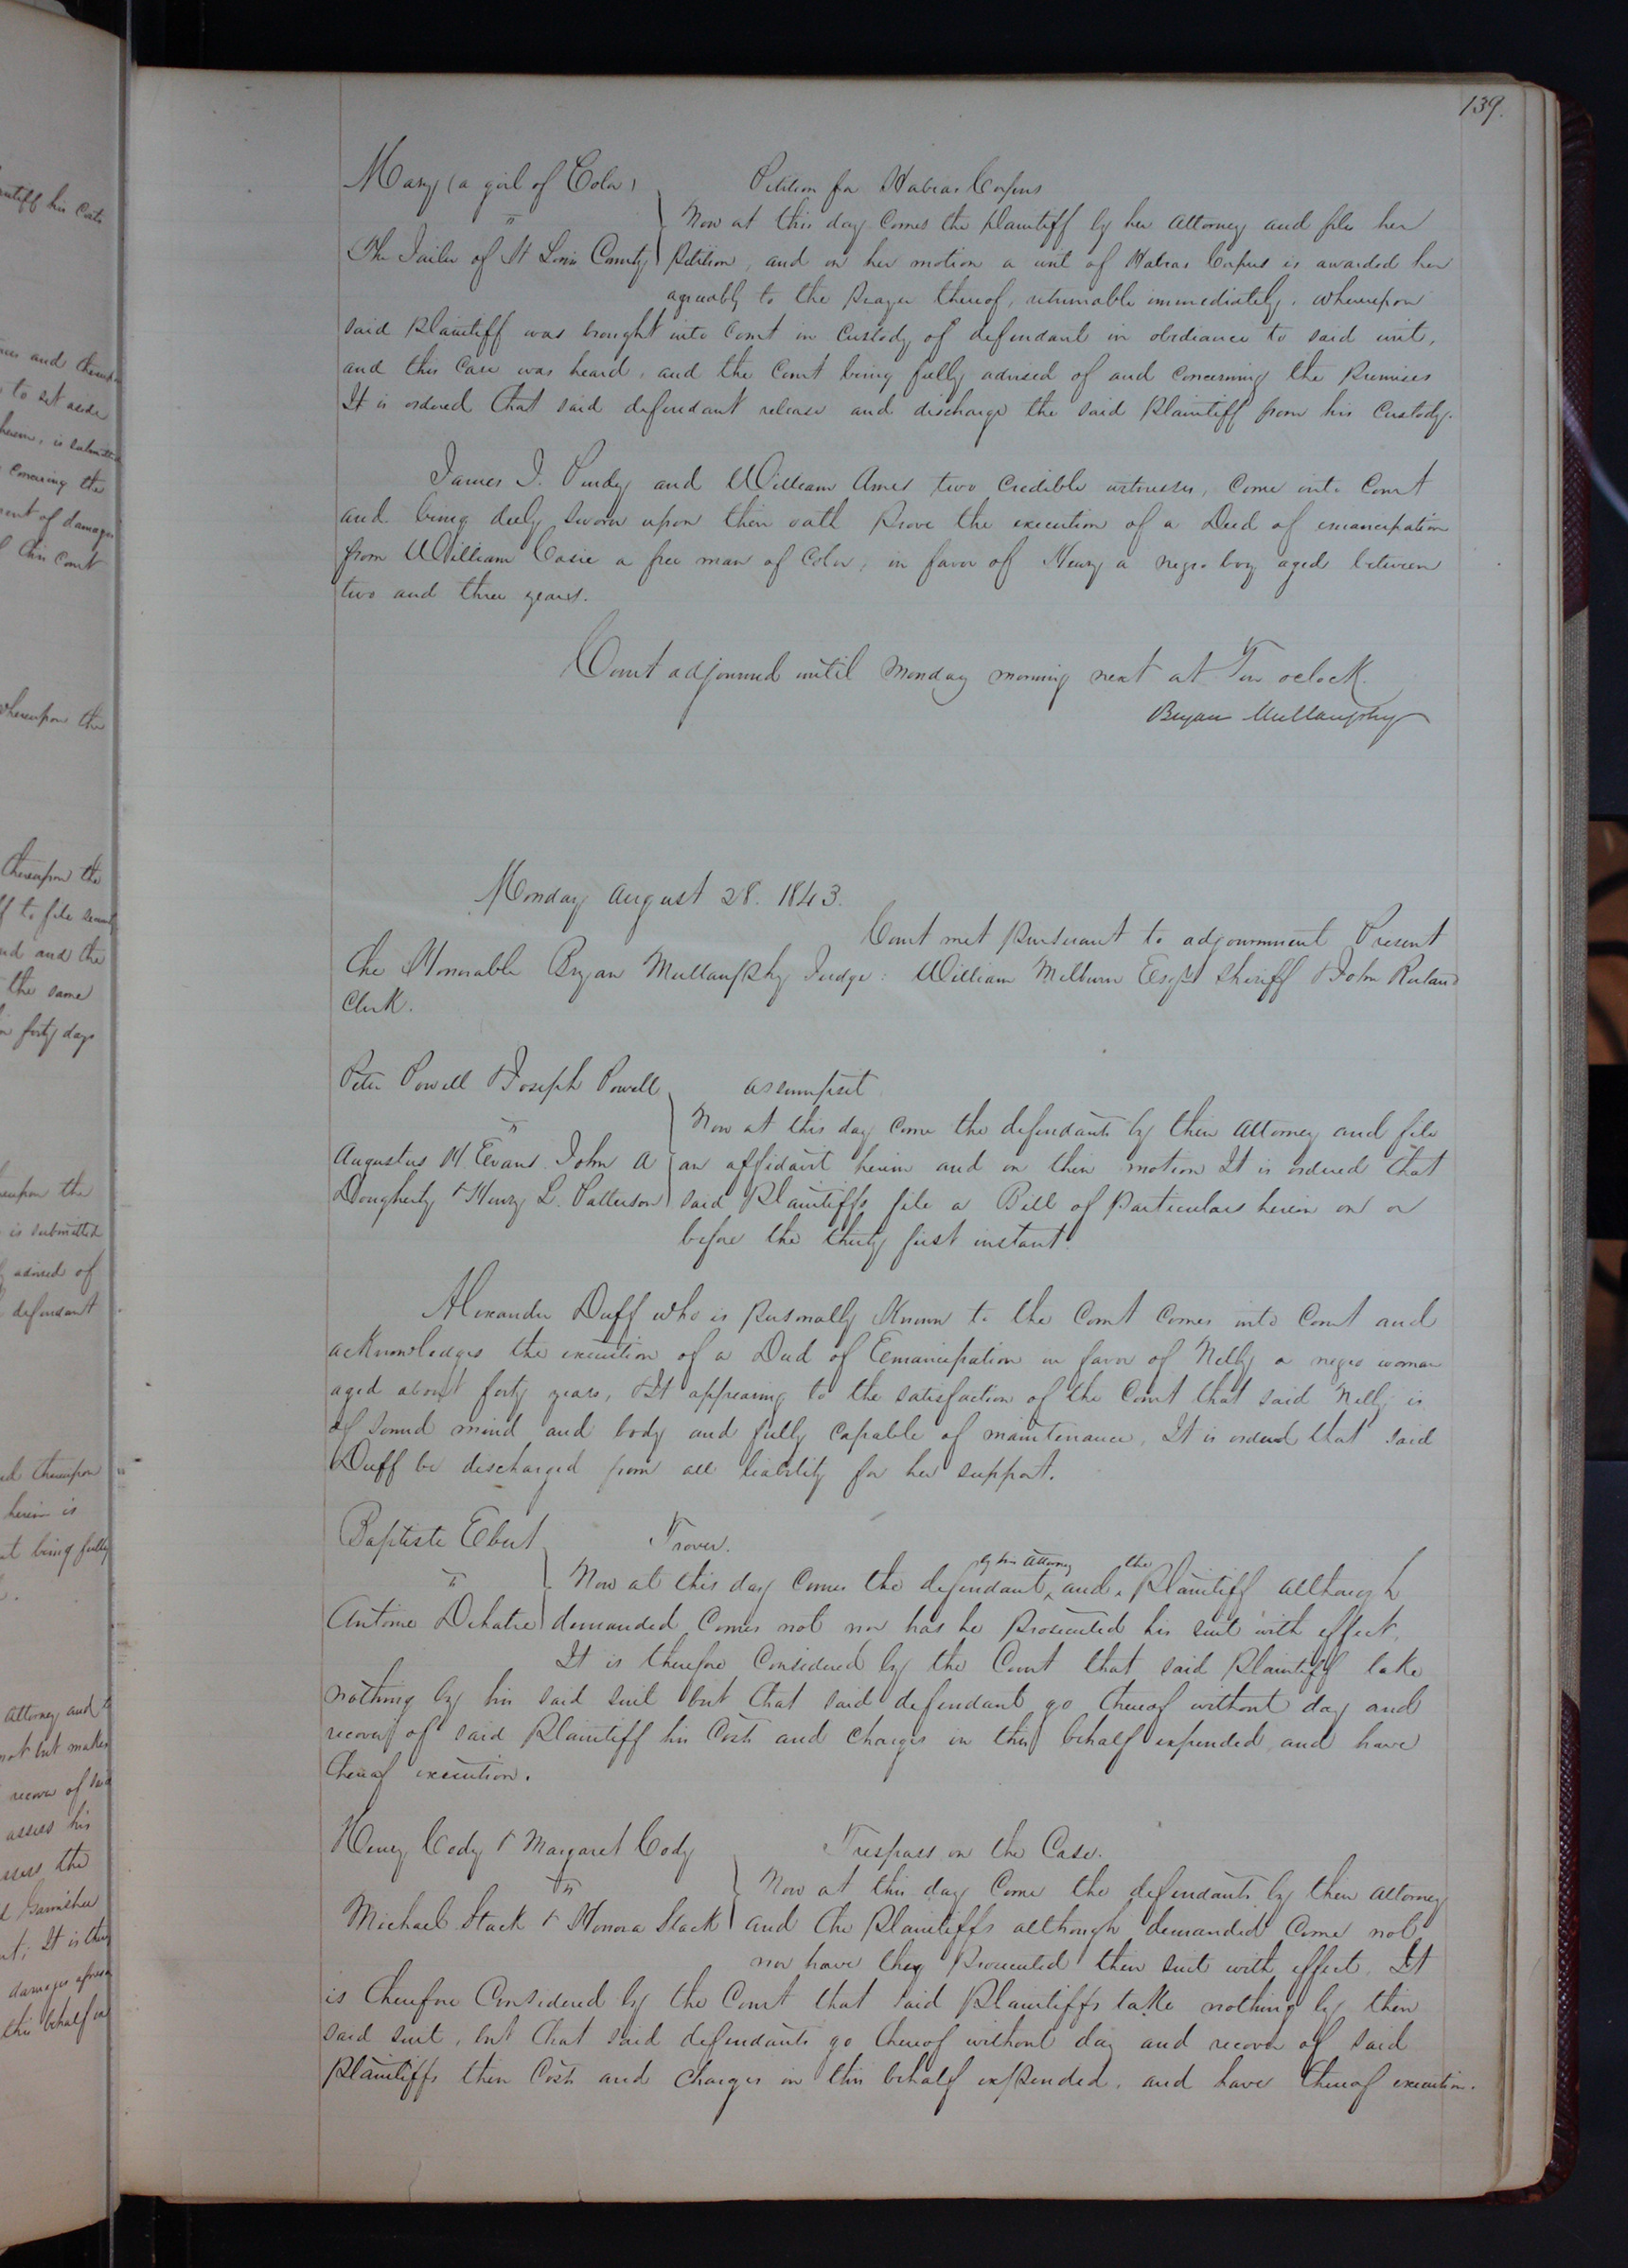 139.
Mary (a girl of Color)
Petition for Habeas Corpus
vs
Now at this day Comes the plaintiff by her attorney and files her
The Jailer of St Louis County
Petition, and on her motion a writ of Habeas Corpus is awarded her
agreeably to the Prayer thereof, returnable immediately. Whereupon
said Plaintiff was brought into Court in Custody of defendant in obedience to said writ,
and this Case was heard, and the Court being fully advised of and Concerning the Premises
It is ordered that said defendant release and discharge the said Plaintiff from his Custody.
James J. Purdy and William Ames two Credible witnesses, Come into Court
and being duly sworn upon their oath Prove the execution of a Deed of emancipation
from William Casie a free man of Color, in favor of Henry a negro boy aged between
two and three years.
Court adjourned until Monday morning next at Ten oclock.
Bryan Mullanphy
Monday August 28. 1843.
Court met Pursuant to adjournment Present
The Honorable Bryan Mullanphy Judge: William Milburn Esqr Sheriff & John Ruland
Clerk.
Peter Powell & Joseph Powell
assumpsit
vs
Now at this day Come the defendants by their attorney and file
Augustus H. Evans John A
an affidavit herein and on their motion It is ordered that
Dougherty & Henry L. Patterson
said Plaintiffs file a Bill of Particulars herein on or
before the thirty first instant.
Alexander Duff who is Personally Known to the Court Comes into Court and
acKnowledges the execution of a Deed of Emancipation in favor of Nelly a negro woman
aged about forty years, & It appearing to the satisfaction of the Court that said Nelly is
of sound mind and body and fully Capable of maintenance, It is ordered that said
Duff be discharged from all liability for her support.
Baptiste Ebert
Trover.
vs
Now at this day Comes the defendant by his attorney and the Plaintiff although
Antoine Dehatre
demanded Comes not nor has he Prosecuted his suit with effect,
It is therefore Considered by the Court that said Plaintiff take
nothing by his said suit but that said defendant go thereof without day and
recover of said Plaintiff his Costs and Charges in this behalf expended, and have
thereof execution.
Henry Cody & Margaret Cody
Trespass on the Case.
vs
Now at this day Come the defendants by their attorney
Michael Stack & Honora Stack
and the Plaintiffs although demanded Come not
nor have they Prosecuted their suit with effect. It
is therefore Considered by the Court that said Plaintiffs take nothing by their
said suit, but that said defendants go thereof without day and recover of said
Plaintiffs their Costs and Charges in this behalf expended, and have thereof execution.